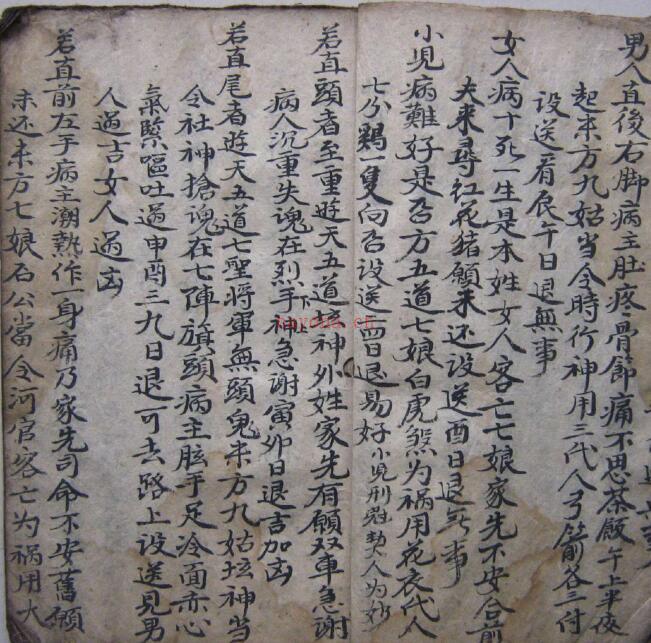 男人直後右脚病主肚疼骨節痛不思茶飯午上半夜
起来方九姑当令時行神用三代人弓箭各三付
設送看辰午日退無事
女人病十死一生是本姓女人客亡七娘家先不安合前
夫来尋紅花猪願未还設送酉日退無事
小児病難好是西方五道七娘白虎煞为禍用花衣代人
七分鷄一隻向西設送酉日退易好小児刑尅契人为妙
若直頭者至重遊天五道神外姓家先有願双車急謝
病人沉重失魂在烈手下神急謝寅卯日退吉加凶
若直尾者遊天五道七聖将軍無頭鬼来方九姑坛神当
令社神搶魂在七陣旗頭病主眩手足冷面赤心
氣緊嘔吐過申酉三九日退可去路上設送見男
人過吉女人過凶
若直前左手病主潮熱作一身痛乃家先司命不安舊願
未还来方七娘石公當令河官客亡为禍用大